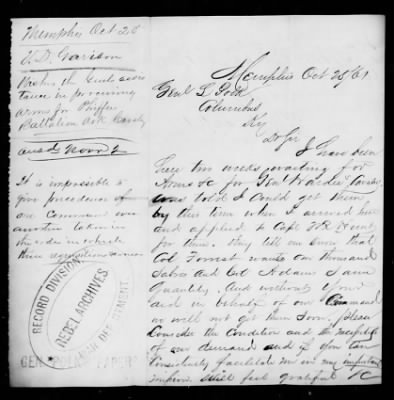 Memphis Oct 28
H. D. Garison
Wishes the Genls assis
tance in procuring
arms for Phiffers
Battalion Ark Cavalry
ansd Novr 2
It is impossible to
give precedence of
one Command over
another
the order in which
their requisitions
RECORD DIVISION
REBEL ARCHIVES
WAR DEPARTMENT
GEN. POLK'S PAPERS
Memphis Oct 28/61
Genl L Polk
Columbus
Ky
Dr Sir
I have been
here two weeks waiting for
Arms &c for Genl Hardee's Cavalry
was told I could get them
by this time when I arrived here
and applied to Capt W R Hunt
for them. They tell me now that
Col Forrest wants one thousand
Sabres and Col Adams Same
Quantity. And without your
aid in behalf of our Command
we will not get them Soon. Please
Consider the Condition and the
of our demand and if you Can
Consistently facilitate me in my important
will feel grateful &c